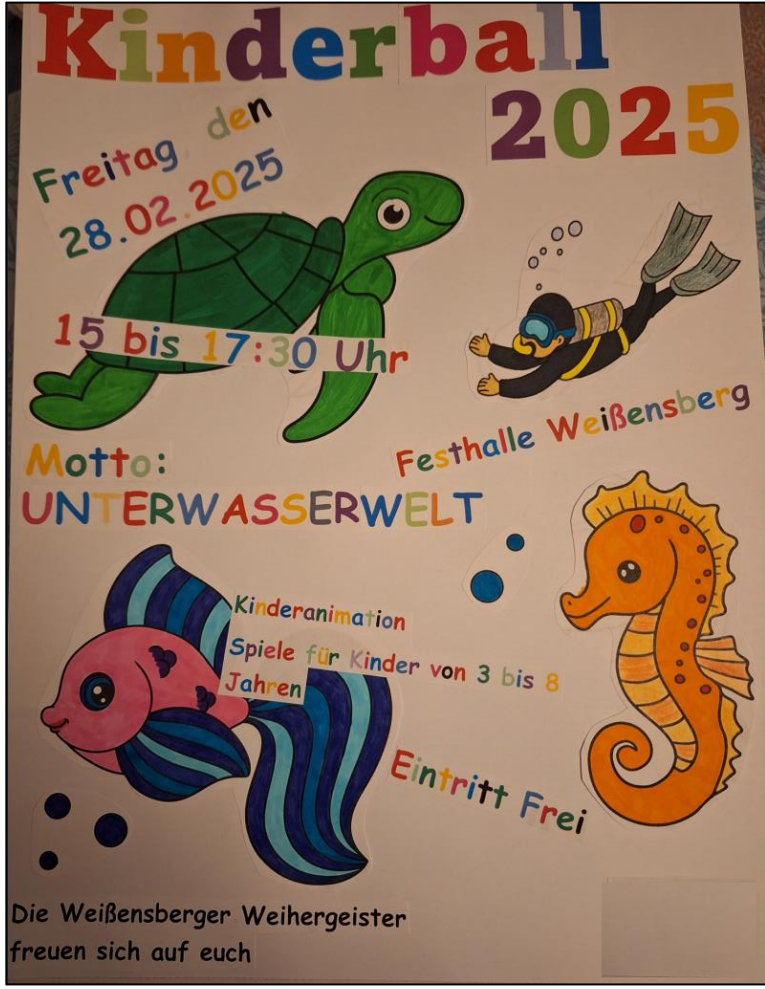 Kinderball
2025
Freitag den
28.02.2025
15 bis 17:30 Uhr
Festhalle Weißensberg
Motto:
UNTERWASSERWELT
Kinderanimation
Spiele für Kinder von 3 bis 8
Jahren
Eintritt Frei
Die Weißensberger Weihergeister
freuen sich auf euch